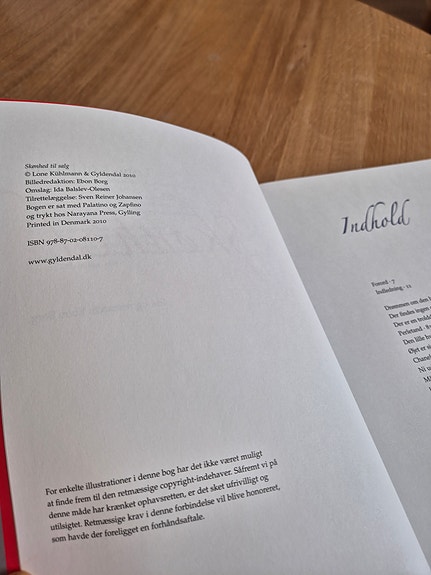 Skønhed til salg
© Lone Kühlmann & Gyldendal 2010
Billedredaktion: Ebon Borg
Omslag: Ida Balslev-Olesen
Tilrettelæggelse: Sven Reiner Johansen
Bogen er sat med Palatino og Zapfino
og trykt hos Narayana Press, Gylling
Printed in Denmark 2010
ISBN 978-87-02-08110-7
www.gyldendal.dk
For enkelte illustrationer i denne bog har det ikke været muligt
at finde frem til den retmæssige copyright-indehaver. Såfremt vi på
denne måde har krænket ophavsretten, er det sket ufrivilligt og
utilsigtet. Retmæssige krav i denne forbindelse vil blive honoreret,
som havde der foreligget en forhåndsaftale.
Indhold
Forord · 7
Indledning · 11
Drømmen om den
Der findes ingen
Der er en
Perletand ·
Den lille
Øjet er
Ni